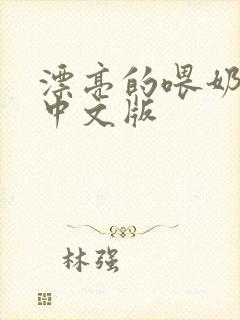 漂亮的喂奶
中文版
林强